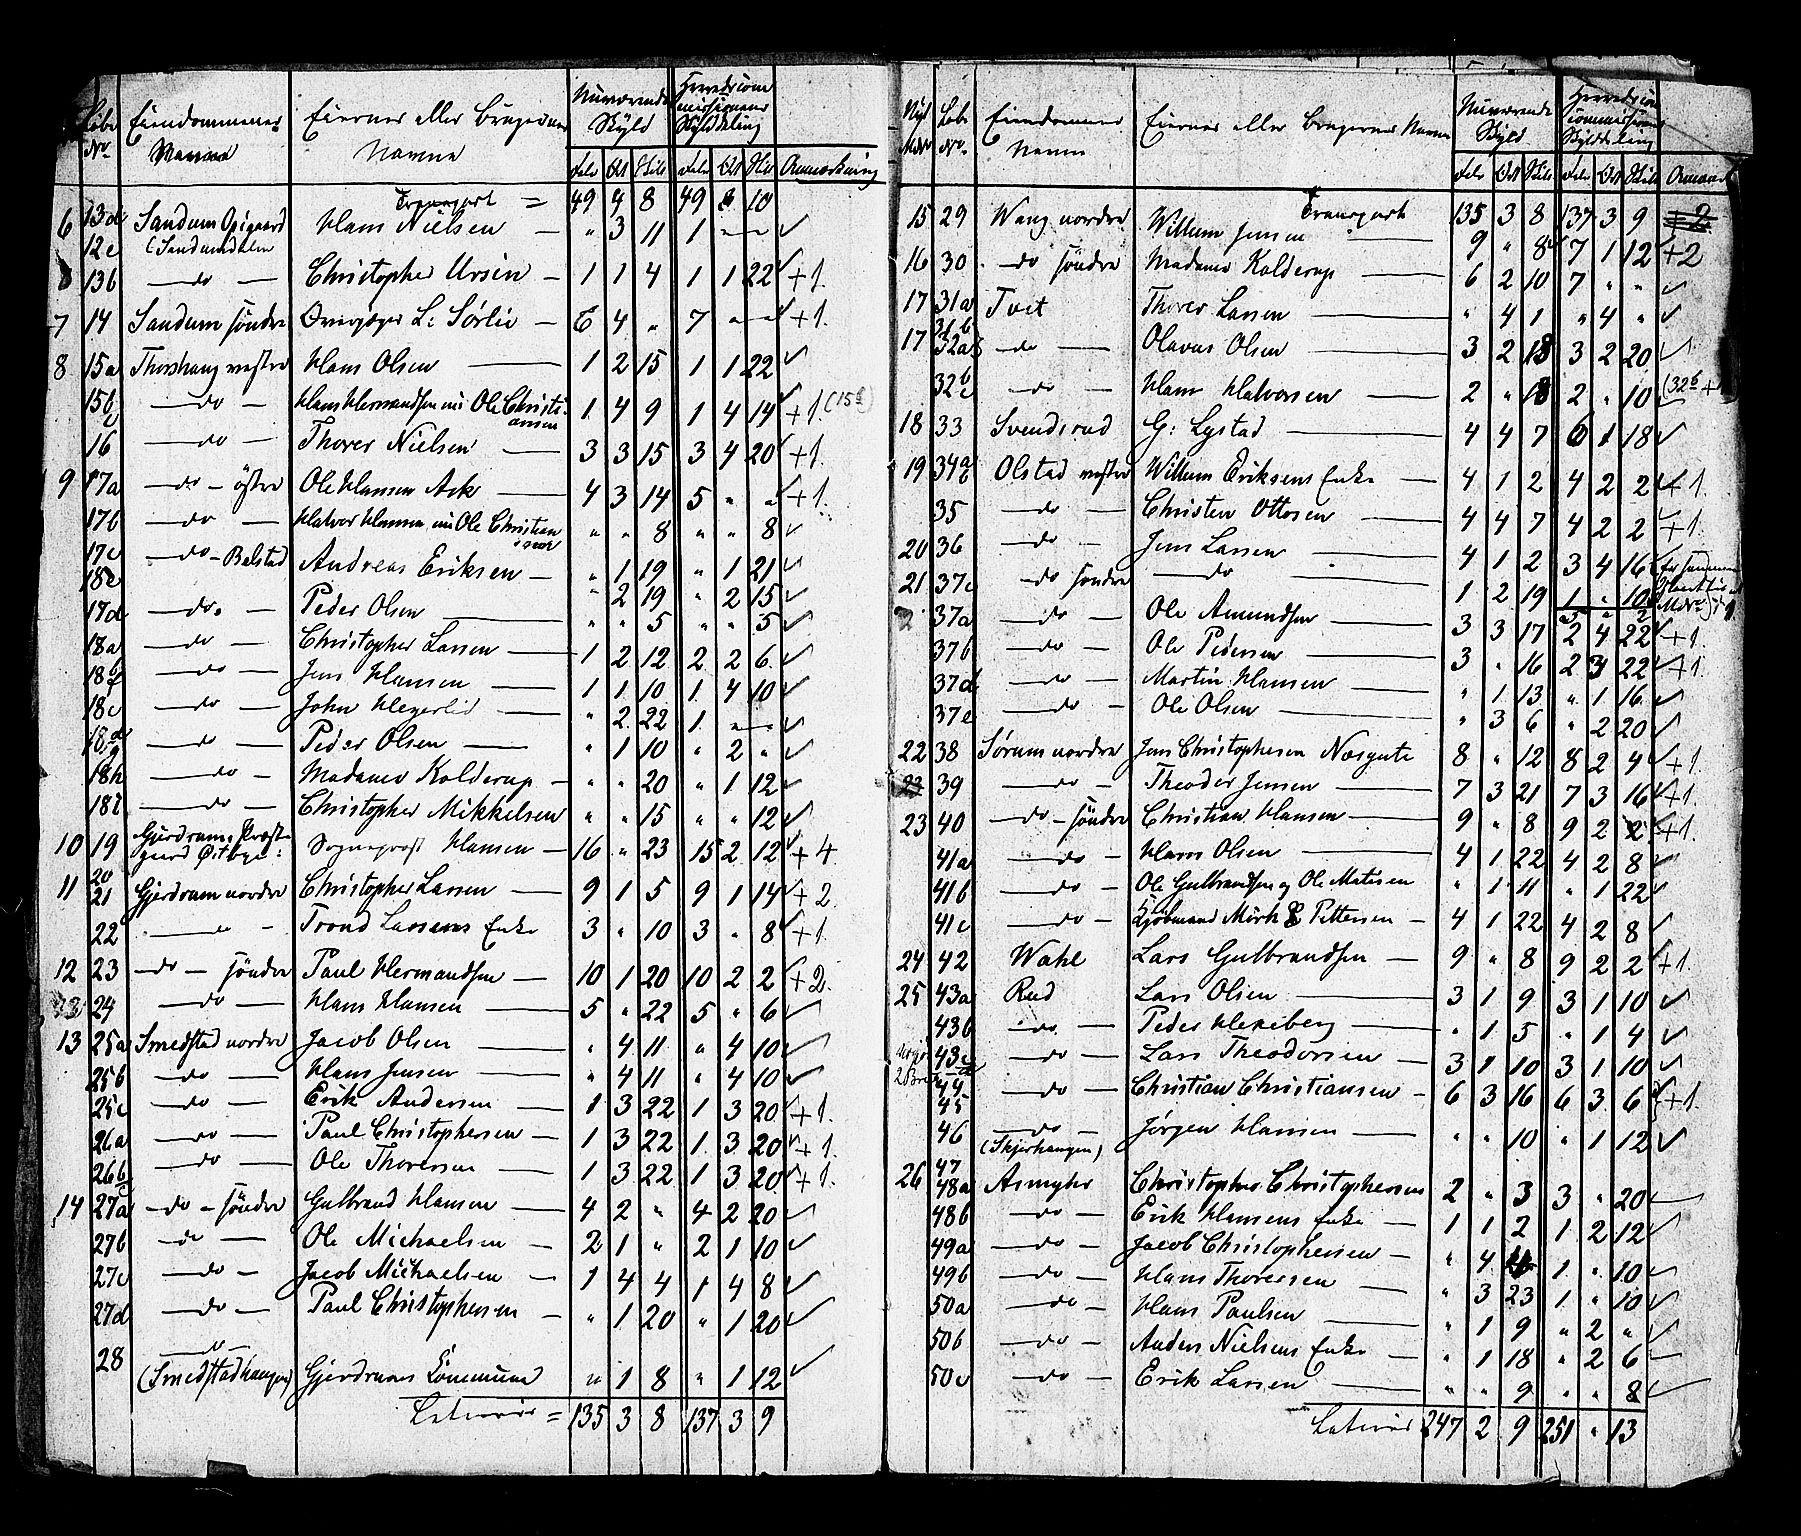 Løbe No Eiendommenes Navne Eiernes eller Brugernes Navne Nuværende Skyld Herredscommissionens Skylddeling Anmærkning
Daler Ort Skil Daler Ort Skil
Transport = 49 4 8 49 10
6 13d 12c Sandum Opigaard (Sandumdalen Hans Nielsen — " 3 11 1 " " ✓
13b — do — Christopher Ursin — 1 1 4 1 1 22 ✓ +1.
7 14 Sandum søndre L: Sørlie — 6 4 " 7 " " ✓ +1.
8 15a Thorshaug vestre Hans Olsen — 1 2 15 1 1 22 ✓
15b c — do — Hans Hermandsen nu Ole Christiansen 1 4 9 1 4 14 ✓ +1. (15c)
16 — do — Thorer Nielsen — 3 3 15 3 4 20 ✓ +1.
9 17a — do — østre Ole Hansen Ask — 4 3 14 5 " " ✓ +1.
17b — do — Halvor Hansen nu Ole Christiansen " " 8 " " 8 ✓
17c 18e — do — Balstad Andreas Eriksen — " 1 19 " 1 21 ✓
17d — do. — Peder Olsen — " 2 19 " 2 15 ✓
" " 5 " " 5 ✓
18a — do — Christopher Larsen — 1 2 12 2 2 6 ✓
18b f — do — Jens Hansen — 1 1 10 1 4 10 ✓
18c — do — John Hexerlid — " 2 22 1 " " ✓
18d g — do — Peder Olsen — " 1 10 " 2 " ✓
18h — do — Madame Kolderup — " " 20 " 1 12 ✓
18i — do — Christopher Mikkelsen " " 15 " " 12 ✓
10 19 20 Gjerdrums Præstegaard Østbye: Sogneprest Hansen — 16 " 23 15 2 12 ✓ +4
11 21 Gjerdrum nordre Christopher Larsen — 9 1 5 9 1 14 ✓ +2.
22 — do — Trond Larsens Enke 3 " 10 3 " 8 ✓ +1.
12 23 — do — søndre Paul Hermandsen — 10 1 20 10 2 2 ✓ +2.
24 — do — Hans Hansen — 5 " 22 5 " 6 ✓
13 25a Smedstad nordre Jacob Olsen — " 4 11 " 4 10 ✓
25b — do — Hans Jensen — " 4 11 " 4 10 ✓
25c — do — Erik Andersen — 1 3 22 1 3 20 ✓ +1.
26a — do — Paul Christophersen — 1 3 22 1 3 20 ✓ +1.
26b — do — Ole Thoresen — 1 3 22 1 3 20 ✓ +1.
14 27a — do — søndre Gulbrand Hansen — 4 2 " 4 2 20 ✓
27b — do — Ole Michaelsen — 2 1 " 2 1 10 ✓
27c — do — Jacob Michaelsen — 1 4 4 1 4 8 ✓
27d — do — Paul Christophersen — " 1 20 " 1 20 ✓
28 — do — (Smedstadhaugen) Gjerdrums Kommune " 1 8 " 1 12 ✓
Lateris = 135 3 8 137 3 9
Nyt Mtr No Løbe No Eiendommenes Navne Eiernes eller Brugernes Navne Nuværende Skyld Herredscommissionens Skylddeling Anmærk
Daler Ort Skil Daler Ort Skil
Transport 135 3 8 137 3 9
15 29 Wang nordre Willum Jensen — 9 " 8 7 1 12 ✓ +2
16 30 — do søndre Madame Kolderup — 6 2 10 7 " " ✓
17 31a Tveit Thorer Larsen — " 4 1 " 4 " ✓
17 31b 32a — do — Olavus Olsen — 3 2 18 3 2 20 ✓
32b c — do — Hans Halvorsen — 2 " 18 2 " 10 (32b +
18 33 Svendsrud G: Lystad — 4 4 7 6 1 18 ✓
19 34a b Olstad vestre Willum Eriksens Enke — 4 1 2 4 2 2 ✓ +1.
35 — do — Christen Ottosen — 4 4 7 4 2 2 ✓ +1.
20 36 — do — Jens Larsen — 4 1 2 3 4 16
21 37c — do søndre — do — 1 2 19 1 " 10
5 " 2
37a — do — Ole Amundsen — 3 3 17 2 4 22 ✓ +1.
37b — do — Ole Pedersen — 3 " 16 2 3 22 ✓ +1
37d — do — Martin Hansen — " 1 13 " 1 16 ✓
37e — do — Ole Olsen — " 3 6 " 2 20 ✓
22 38 Sørum nordre Jens Christophersen Næsgute 8 " 12 8 2 4 ✓ +1.
23 39 — do — Theoder Jensen — 7 3 21 7 3 16 ✓ +1.
23 40 — do — søndre Christian Hansen — 9 " 8 9 2 2 ✓ +1.
41a — do — Hans Olsen — 4 1 22 4 2 8 ✓
41b — do — Ole Gulbrandsen og Ole Matisen " 1 11 " 1 22 ✓
41c — do — Kjøbmand Mørk & Pettersen — 4 1 22 4 2 8 ✓
24 42 Wahl Lars Gulbrandsen — 9 " 8 9 2 2 ✓ +1.
25 43a Rud Lars Olsen — 3 1 9 3 1 10 ✓
43b — do — Peder Hexeberg — " 1 5 " 1 4 ✓
43c d — do — Lars Theodorsen — 3 1 10 3 1 10 ✓
44 45 — do — Christian Christiansen — 6 3 16 6 3 6 ✓ +1.
46 — do — (Skjerhaugen) Jørgen Hansen — " " 10 " 1 12 ✓
26 47 48a Asmyhr Christopher Christophersen 2 " 3 3 " 20 ✓
48b — do — Erik Hansens Enke — 1 1 2 1 2 12 ✓
49a — do — Jacob Christophersen — " 4 1 " 10 ✓
49b — do — Hans Thoresen — " 3 23 1 " 10 ✓
50a — do — Hans Paulsen — " 1 9 " 2 " ✓
50b — do — Anders Nielsens Enke — " 1 18 " 2 6 —
50c — do — Erik Larsen — " " 9 " " 8 ✓
Lateris 247 2 9 251 " 13